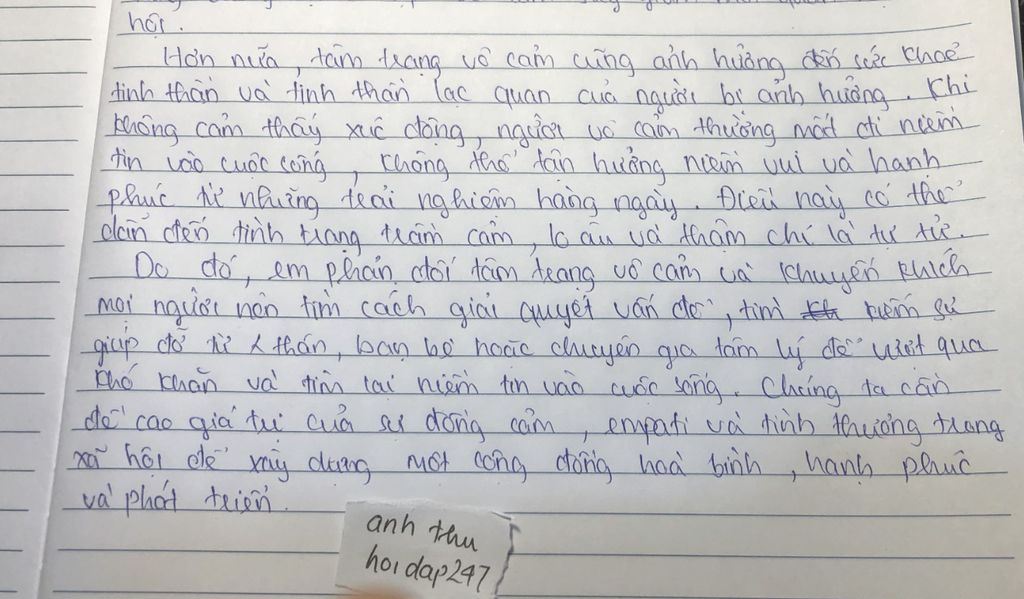 hội.
Hơn nữa, tâm trạng vô cảm cũng ảnh hưởng đến sức khoẻ
tinh thần và tinh thần lạc quan của người bị ảnh hưởng. Khi
không cảm thấy xúc động, người vô cảm thường mất đi niềm
tin vào cuộc sống, không thể tận hưởng niềm vui và hạnh
phúc từ những trải nghiệm hàng ngày. Điều này có thể
dẫn đến tình trạng trầm cảm, lo âu và thậm chí là tự tử.
Do đó, em phản đối tâm trạng vô cảm và khuyến khích
mọi người nên tìm cách giải quyết vấn đề, tìm kiếm sự
giúp đỡ từ thân, bạn bè hoặc chuyên gia tâm lý để vượt qua
khó khăn và tìm lại niềm tin vào cuộc sống. Chúng ta cần
đề cao giá trị của sự đồng cảm, empati và tình thương trong
xã hội để xây dựng một cộng đồng hoà bình, hạnh phúc
và phát triển.
anh thu
hoidap247